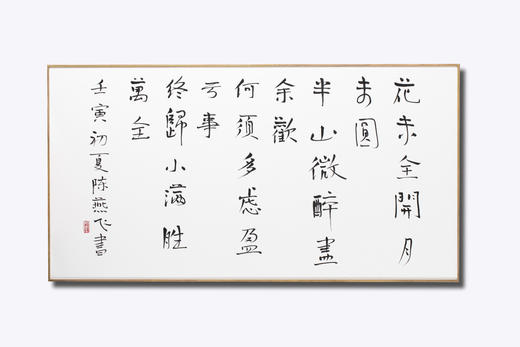 花未全開月
未圓
半山微醉盡
余歡
何須多慮盈
亏事
终歸小滿胜
萬全
壬寅初夏陈燕飞書